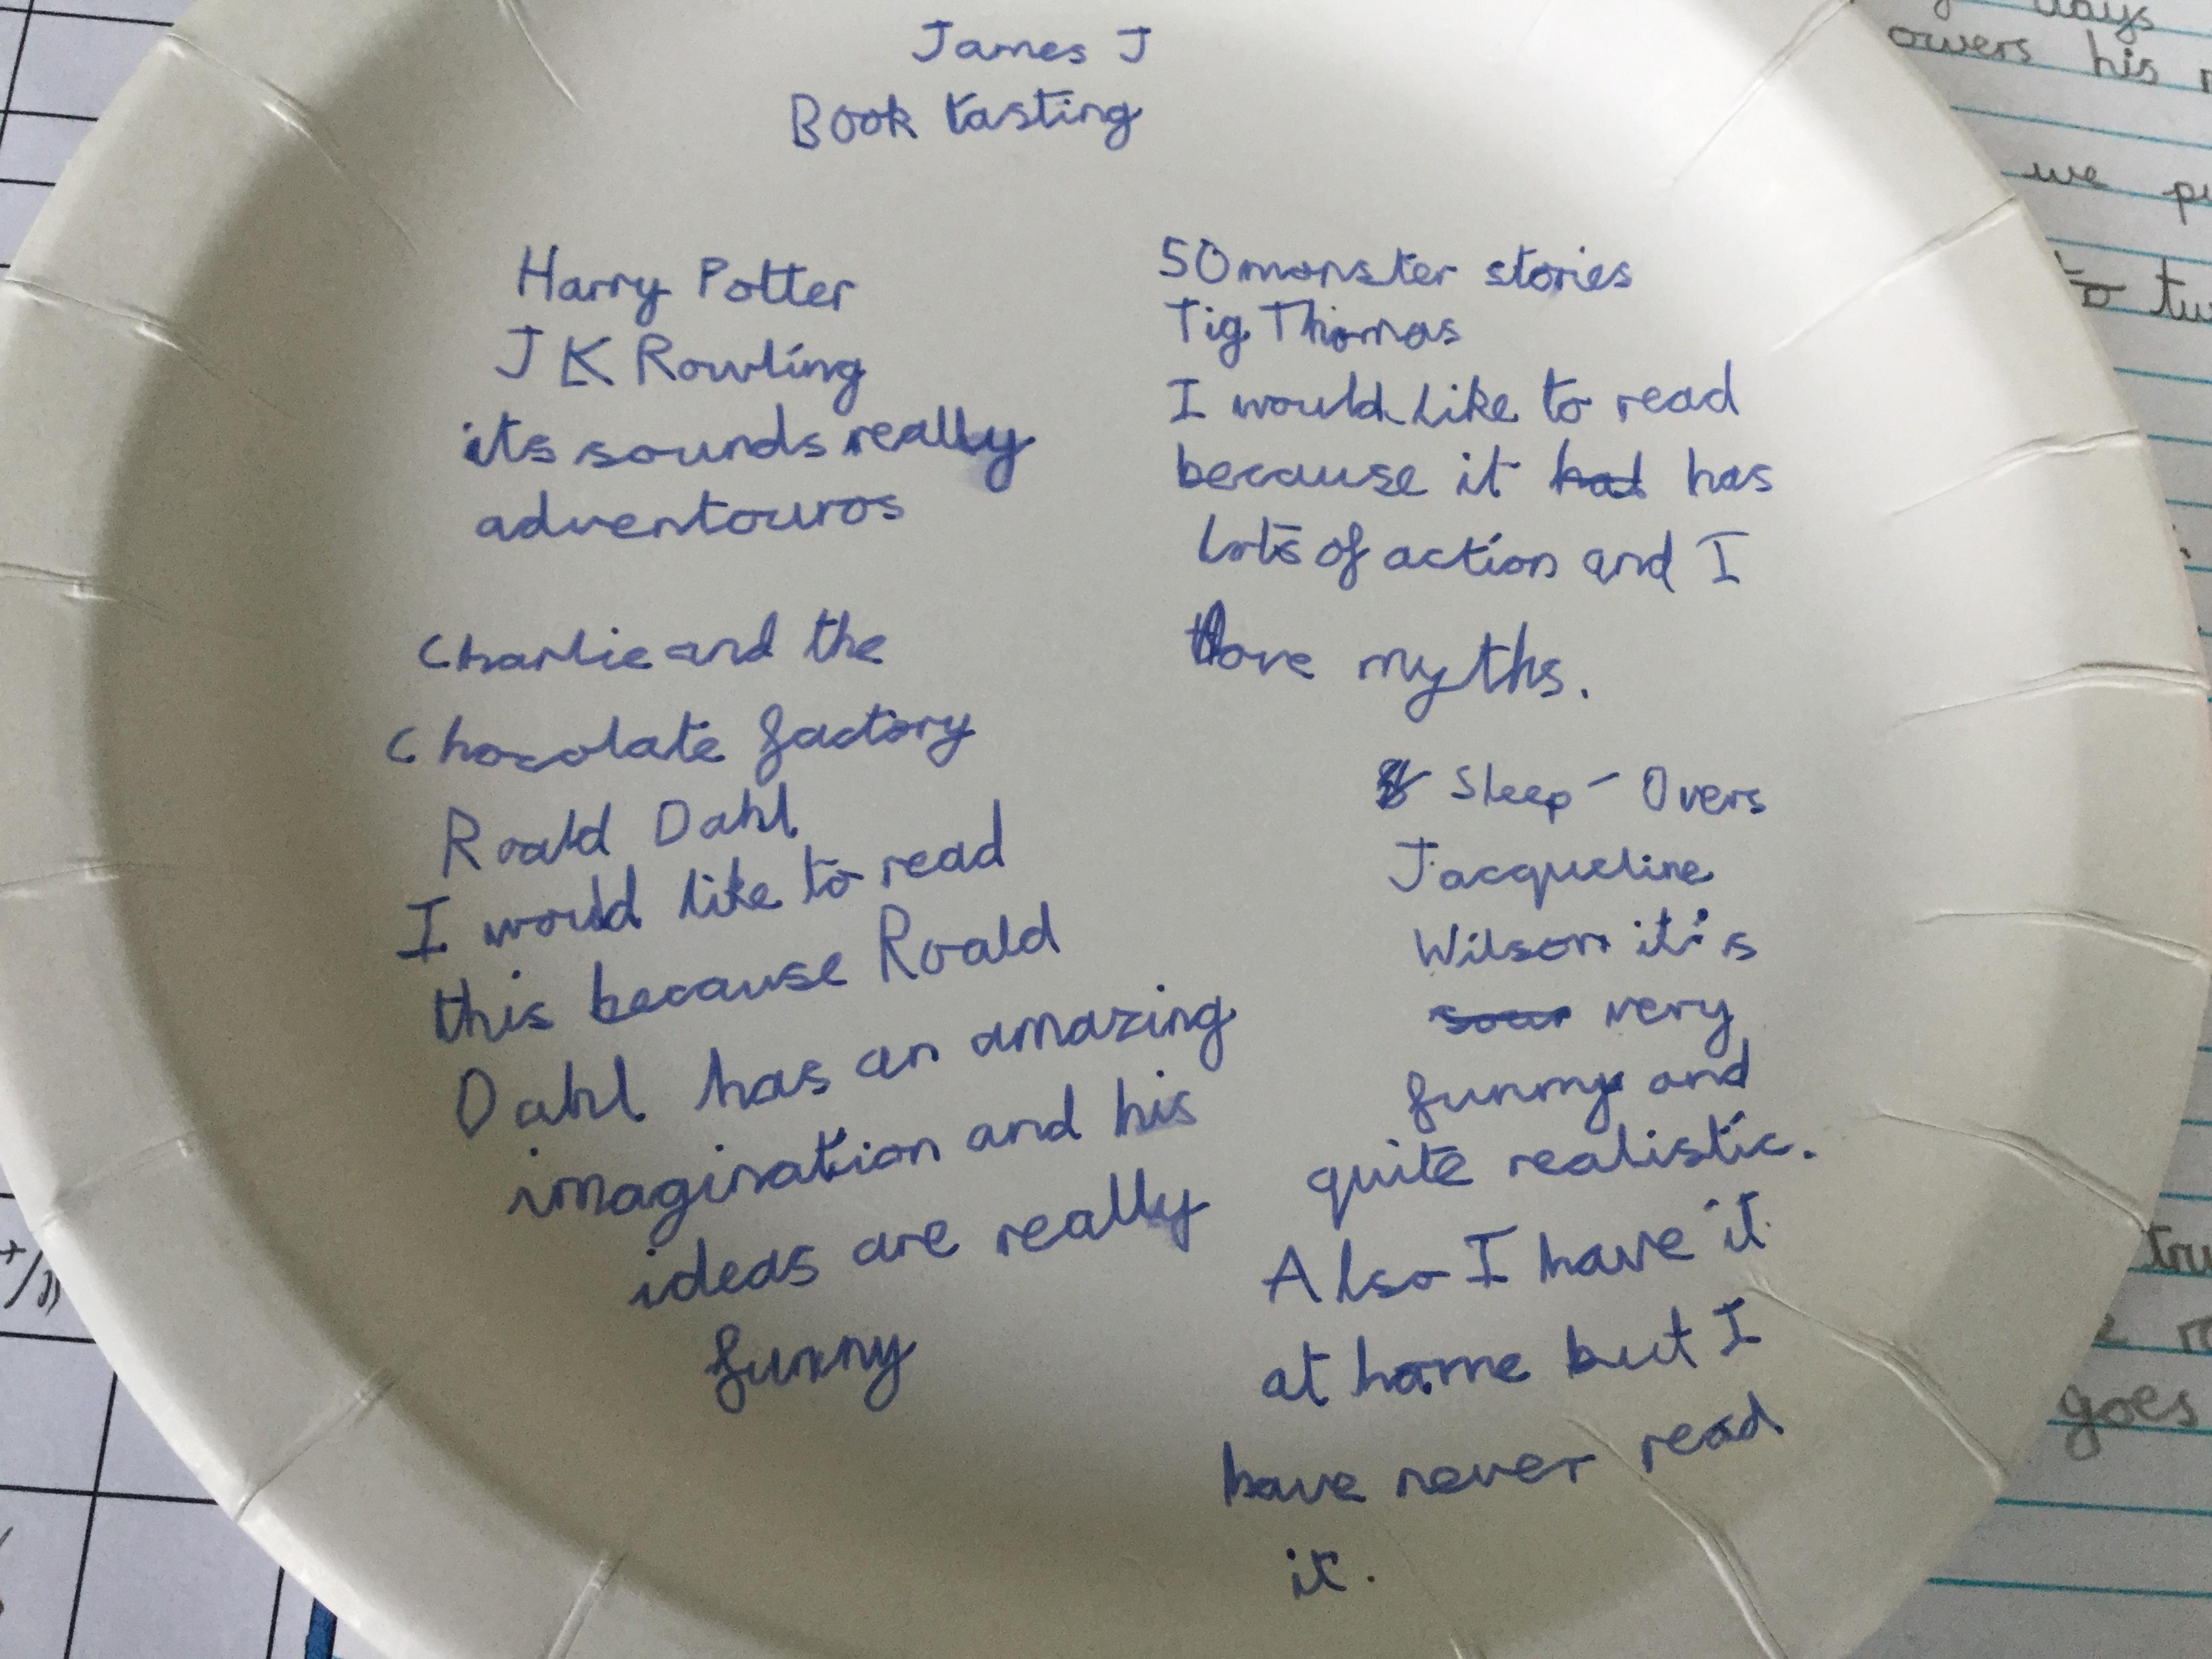 James J
Book tasting
Harry Potter
J K Rowling
its sounds really
adventouros
Charlie and the
Chocolate factory
Roald Dahl
I would like to read
this because Roald
Dahl has an amazing
imagination and his
ideas are really
funny
50 monster stories
Tig Thomas
I would like to read
because it had has
lots of action and I
love myths.
Sleep-Overs
Jacqueline
Wilson it's
very
funny and
quite realistic.
Also I have it
at home but I
have never read
it.
days
owers his
we
to
goes